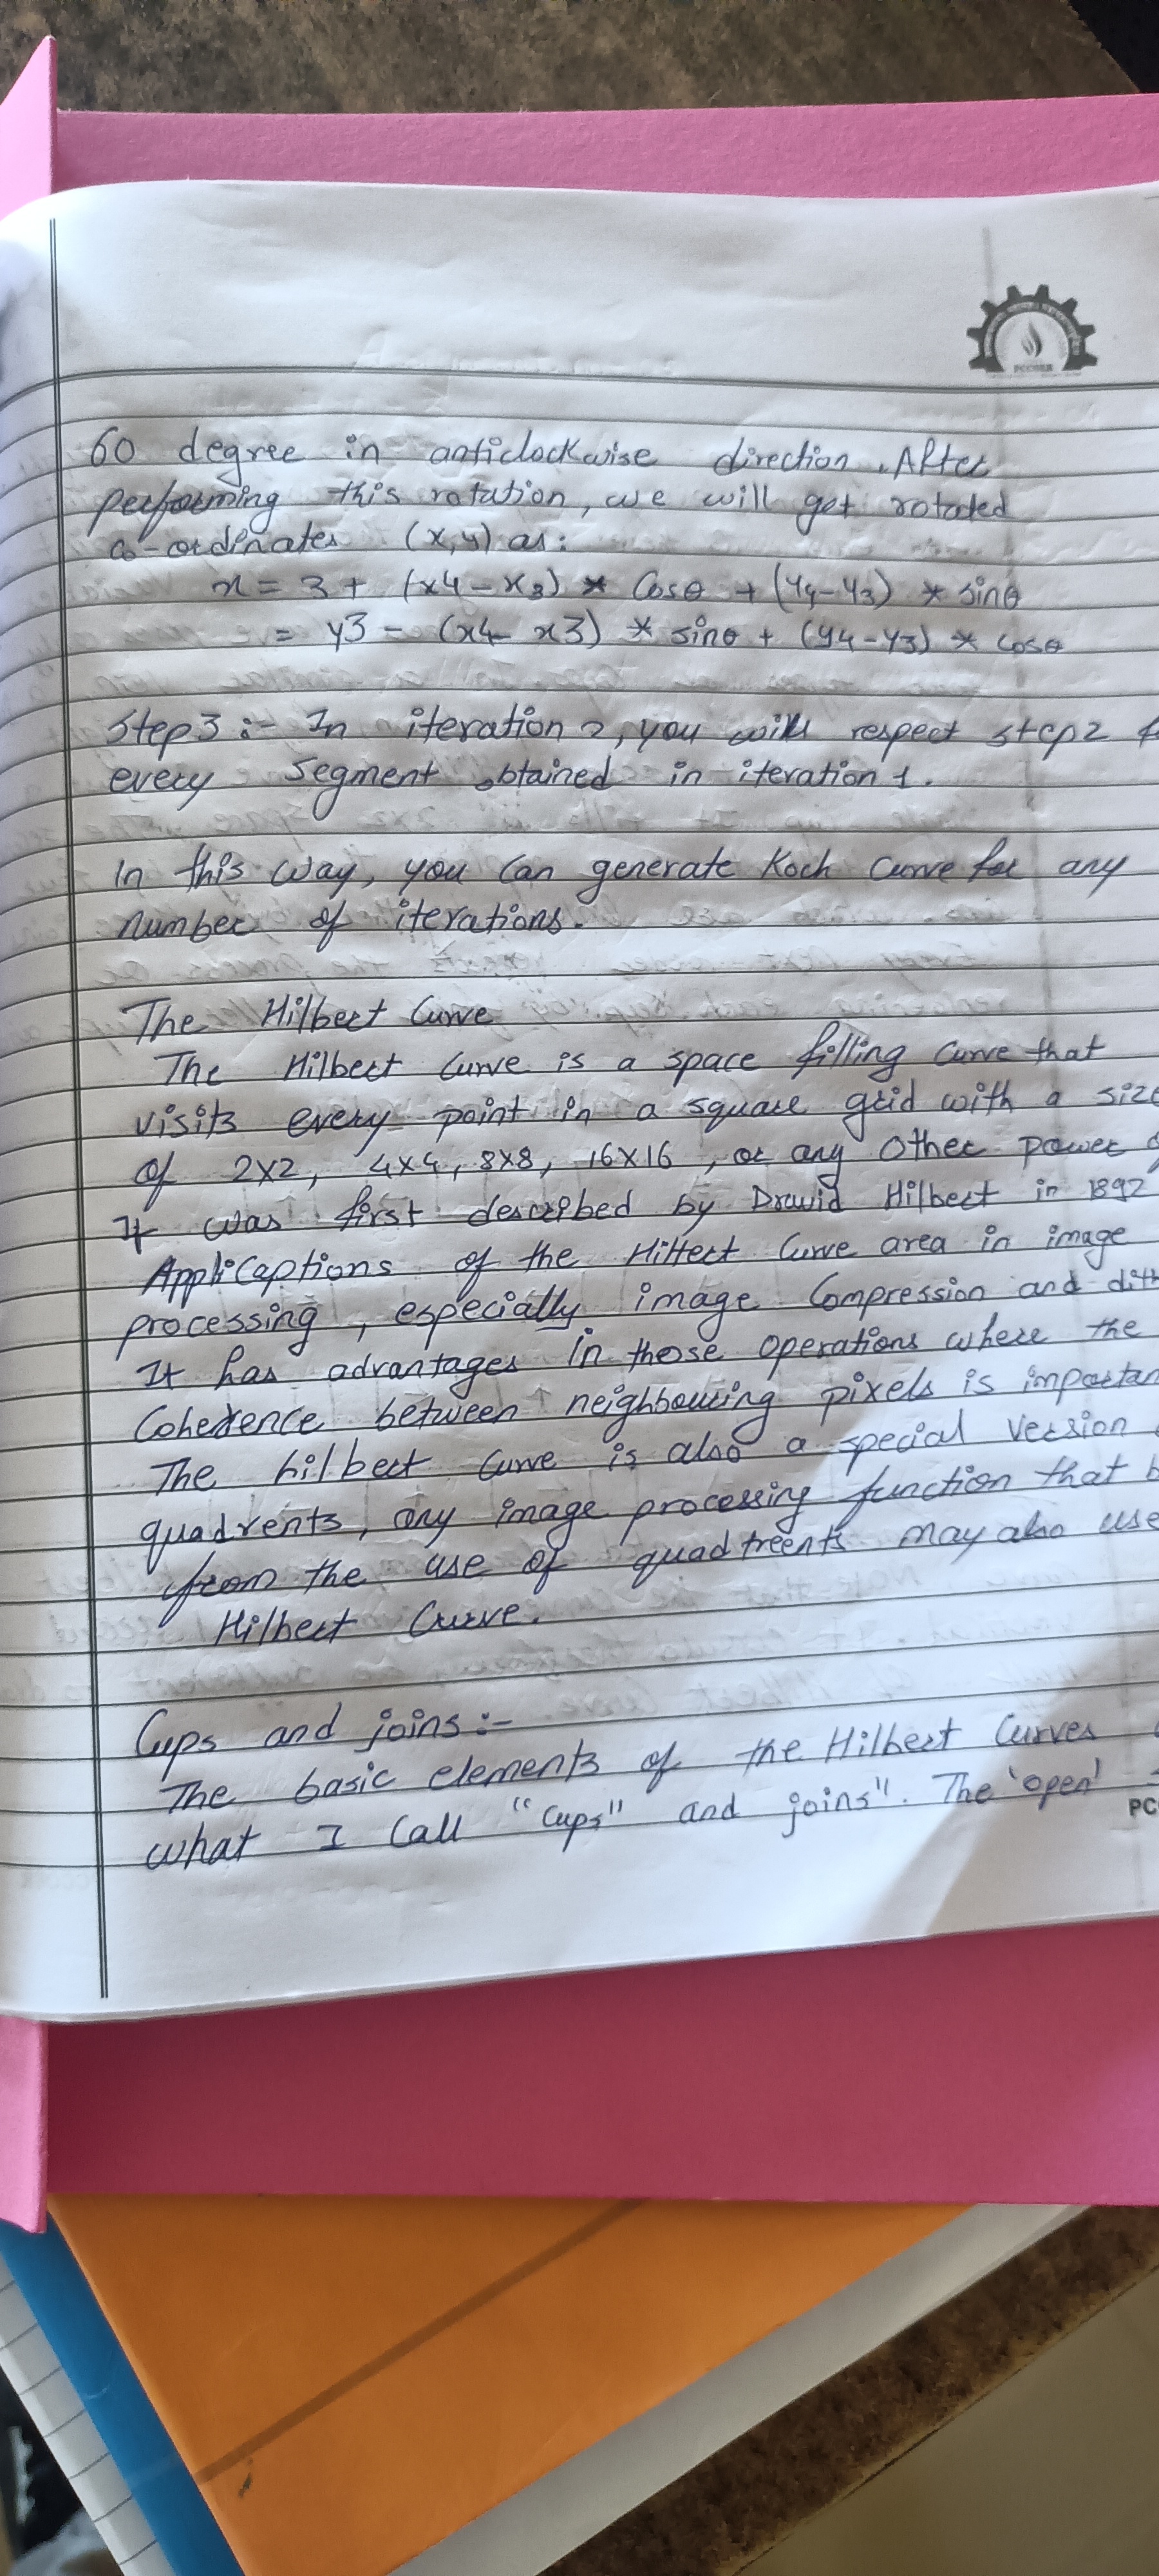 60 degree in anticlockwise direction. After
performing this rotation, we will get rotated
co-ordinates (x,y) as:
x = 3 + (x4-x3) * cosθ + (y4-y3) * sinθ
= y3 - (x4-x3) * sinθ + (y4-y3) * cosθ
Step 3 :- In iteration 2, you will respect step 2
every segment obtained in iteration 1.
In this way, you can generate Koch Curve for any
number of iterations.
The Hilbert Curve
The Hilbert Curve is a space filling curve that
visits every point in a square grid with a size
of 2x2, 4x4, 8x8, 16x16, or any other power
It was first described by Drawid Hilbert in 1892
Applicaptions of the Hittert Curve area in image
processing, especially image compression and dith
It has advantages in those operations where the
Coherence between neighbouring pixels is importan
The hilbert curve is also a special version
quadrents, any image processing function that b
from the use of quadtreents may also use
Hilbert Curve.
Cups and joins :-
The basic elements of the Hilbert Curves
what I call "Cups" and joins". The 'open'
PC